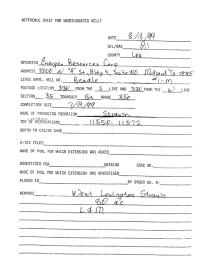 REFERENCE SHEET FOR UNDESIGNATED WELLS
DATE 8/18/99
OIL/GAS Oil
COUNTY Lea
OPERATOR Energen Resources Corp
ADDRESS 3300 N "A" St, Bldg 4, Suite 100 Midland Tx 79705
LEASE NAME, WELL NO. Beadle #1-M
FOOTAGE LOCATION 330 FROM THE S LINE AND 330 FROM THE W LINE
SECTION 35 TOWNSHIP 15s RANGE 35e
COMPLETION DATE 7/29/99
NAME OF PRODUCING FORMATION Strawn
TOP OF PERFORATIONS 11550-11572
DEPTH TO CASING SHOE
C-123 FILED
NAME OF POOL FOR WHICH EXTENSION WAS ASKED
ADVERTISED FOR HEARING CASE NO.
NAME OF POOL FOR WHICH EXTENSION WAS ADVERTISED
PLACED IN BY ORDER NO. R-
REMARKS West Lovington Strawn
80 ac
L & M